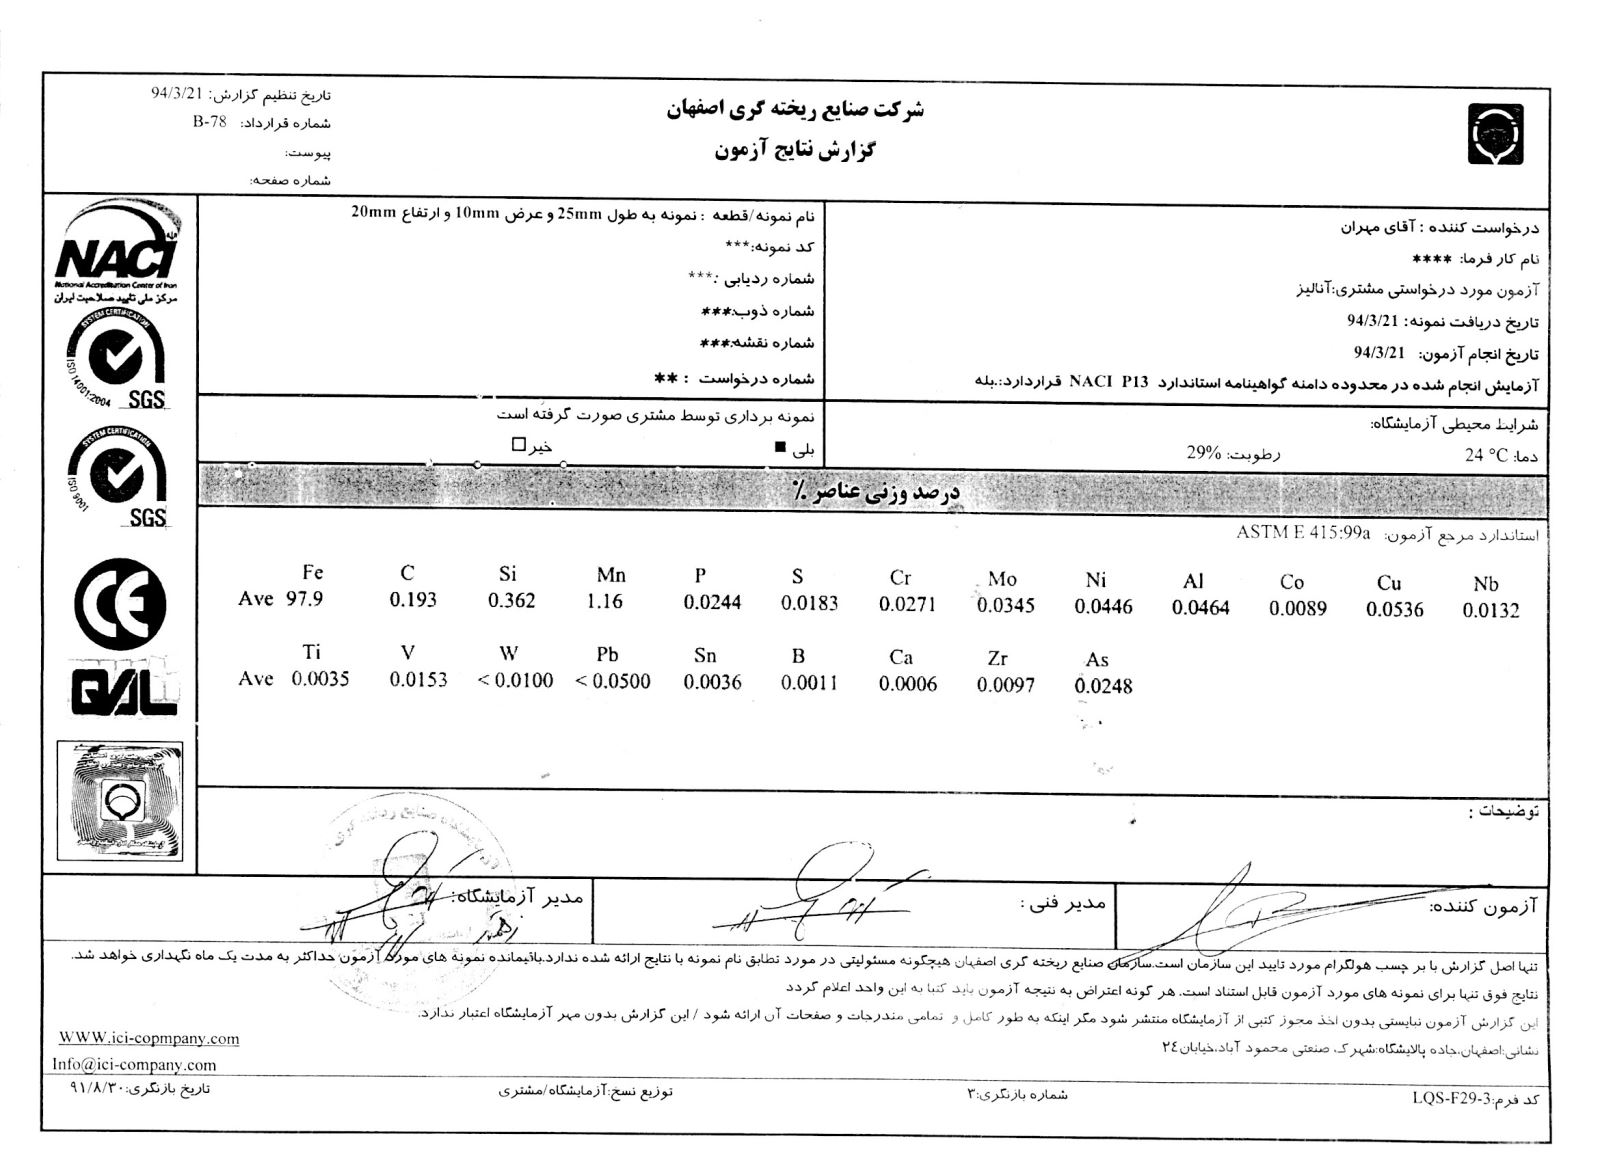 شرکت صنایع ریخته گری اصفهان
گزارش نتایج آزمون
تاریخ تنظیم گزارش: 94/3/21
شماره قرارداد: B-78
پیوست:
شماره صفحه:
درخواست کننده : آقای مهران
نام کار فرما: ****
آزمون مورد درخواستی مشتری:آنالیز
تاریخ دریافت نمونه: 94/3/21
تاریخ انجام آزمون: 94/3/21
آزمایش انجام شده در محدوده دامنه گواهینامه استاندارد NACI P13 قراردارد:.بله
نام نمونه/قطعه : نمونه به طول 25mm و عرض 10mm و ارتفاع 20mm
کد نمونه:***
شماره ردیابی :***
شماره ذوب:***
شماره نقشه:***
شماره درخواست : **
شرایط محیطی آزمایشگاه:
دما: 24 °C رطوبت: 29%
نمونه برداری توسط مشتری صورت گرفته است
بلی ■ خیر □
درصد وزنی عناصر %
استاندارد مرجع آزمون: ASTM E 415:99a
Fe C Si Mn P S Cr Mo Ni Al Co Cu Nb
Ave 97.9 0.193 0.362 1.16 0.0244 0.0183 0.0271 0.0345 0.0446 0.0464 0.0089 0.0536 0.0132
Ti V W Pb Sn B Ca Zr As
Ave 0.0035 0.0153 < 0.0100 < 0.0500 0.0036 0.0011 0.0006 0.0097 0.0248
توضیحات :
آزمون کننده:
مدیر فنی :
مدیر آزمایشگاه:
تنها اصل گزارش با بر چسب هولگرام مورد تایید این سازمان است.سازمان صنایع ریخته گری اصفهان هیچگونه مسئولیتی در مورد تطابق نام نمونه با نتایج ارائه شده ندارد.باقیمانده نمونه های مورد آزمون حداکثر به مدت یک ماه نگهداری خواهد شد.
نتایج فوق تنها برای نمونه های مورد آزمون قابل استناد است. هر گونه اعتراض به نتیجه آزمون باید کتبا به این واحد اعلام گردد
این گزارش آزمون نبایستی بدون اخذ مجوز کتبی از آزمایشگاه منتشر شود مگر اینکه به طور کامل و تمامی مندرجات و صفحات آن ارائه شود / این گزارش بدون مهر آزمایشگاه اعتبار ندارد.
نشانی:اصفهان.جاده پالایشگاه:شهرک صنعتی محمود آباد،خیابان ٢٤
WWW.ici-copmpany.com
Info@ici-company.com
کد فرم:LQS-F29-3
شماره بازنگری:۳
توزیع نسخ:آزمایشگاه/مشتری
تاریخ بازنگری:۹۱/۸/۳۰
NACI
National Accreditation Center of Iran
مرکز ملی تأیید صلاحیت ایران
SYSTEM CERTIFICATION
ISO 14001:2004
SGS
SYSTEM CERTIFICATION
ISO 9001
SGS
CE
QAL